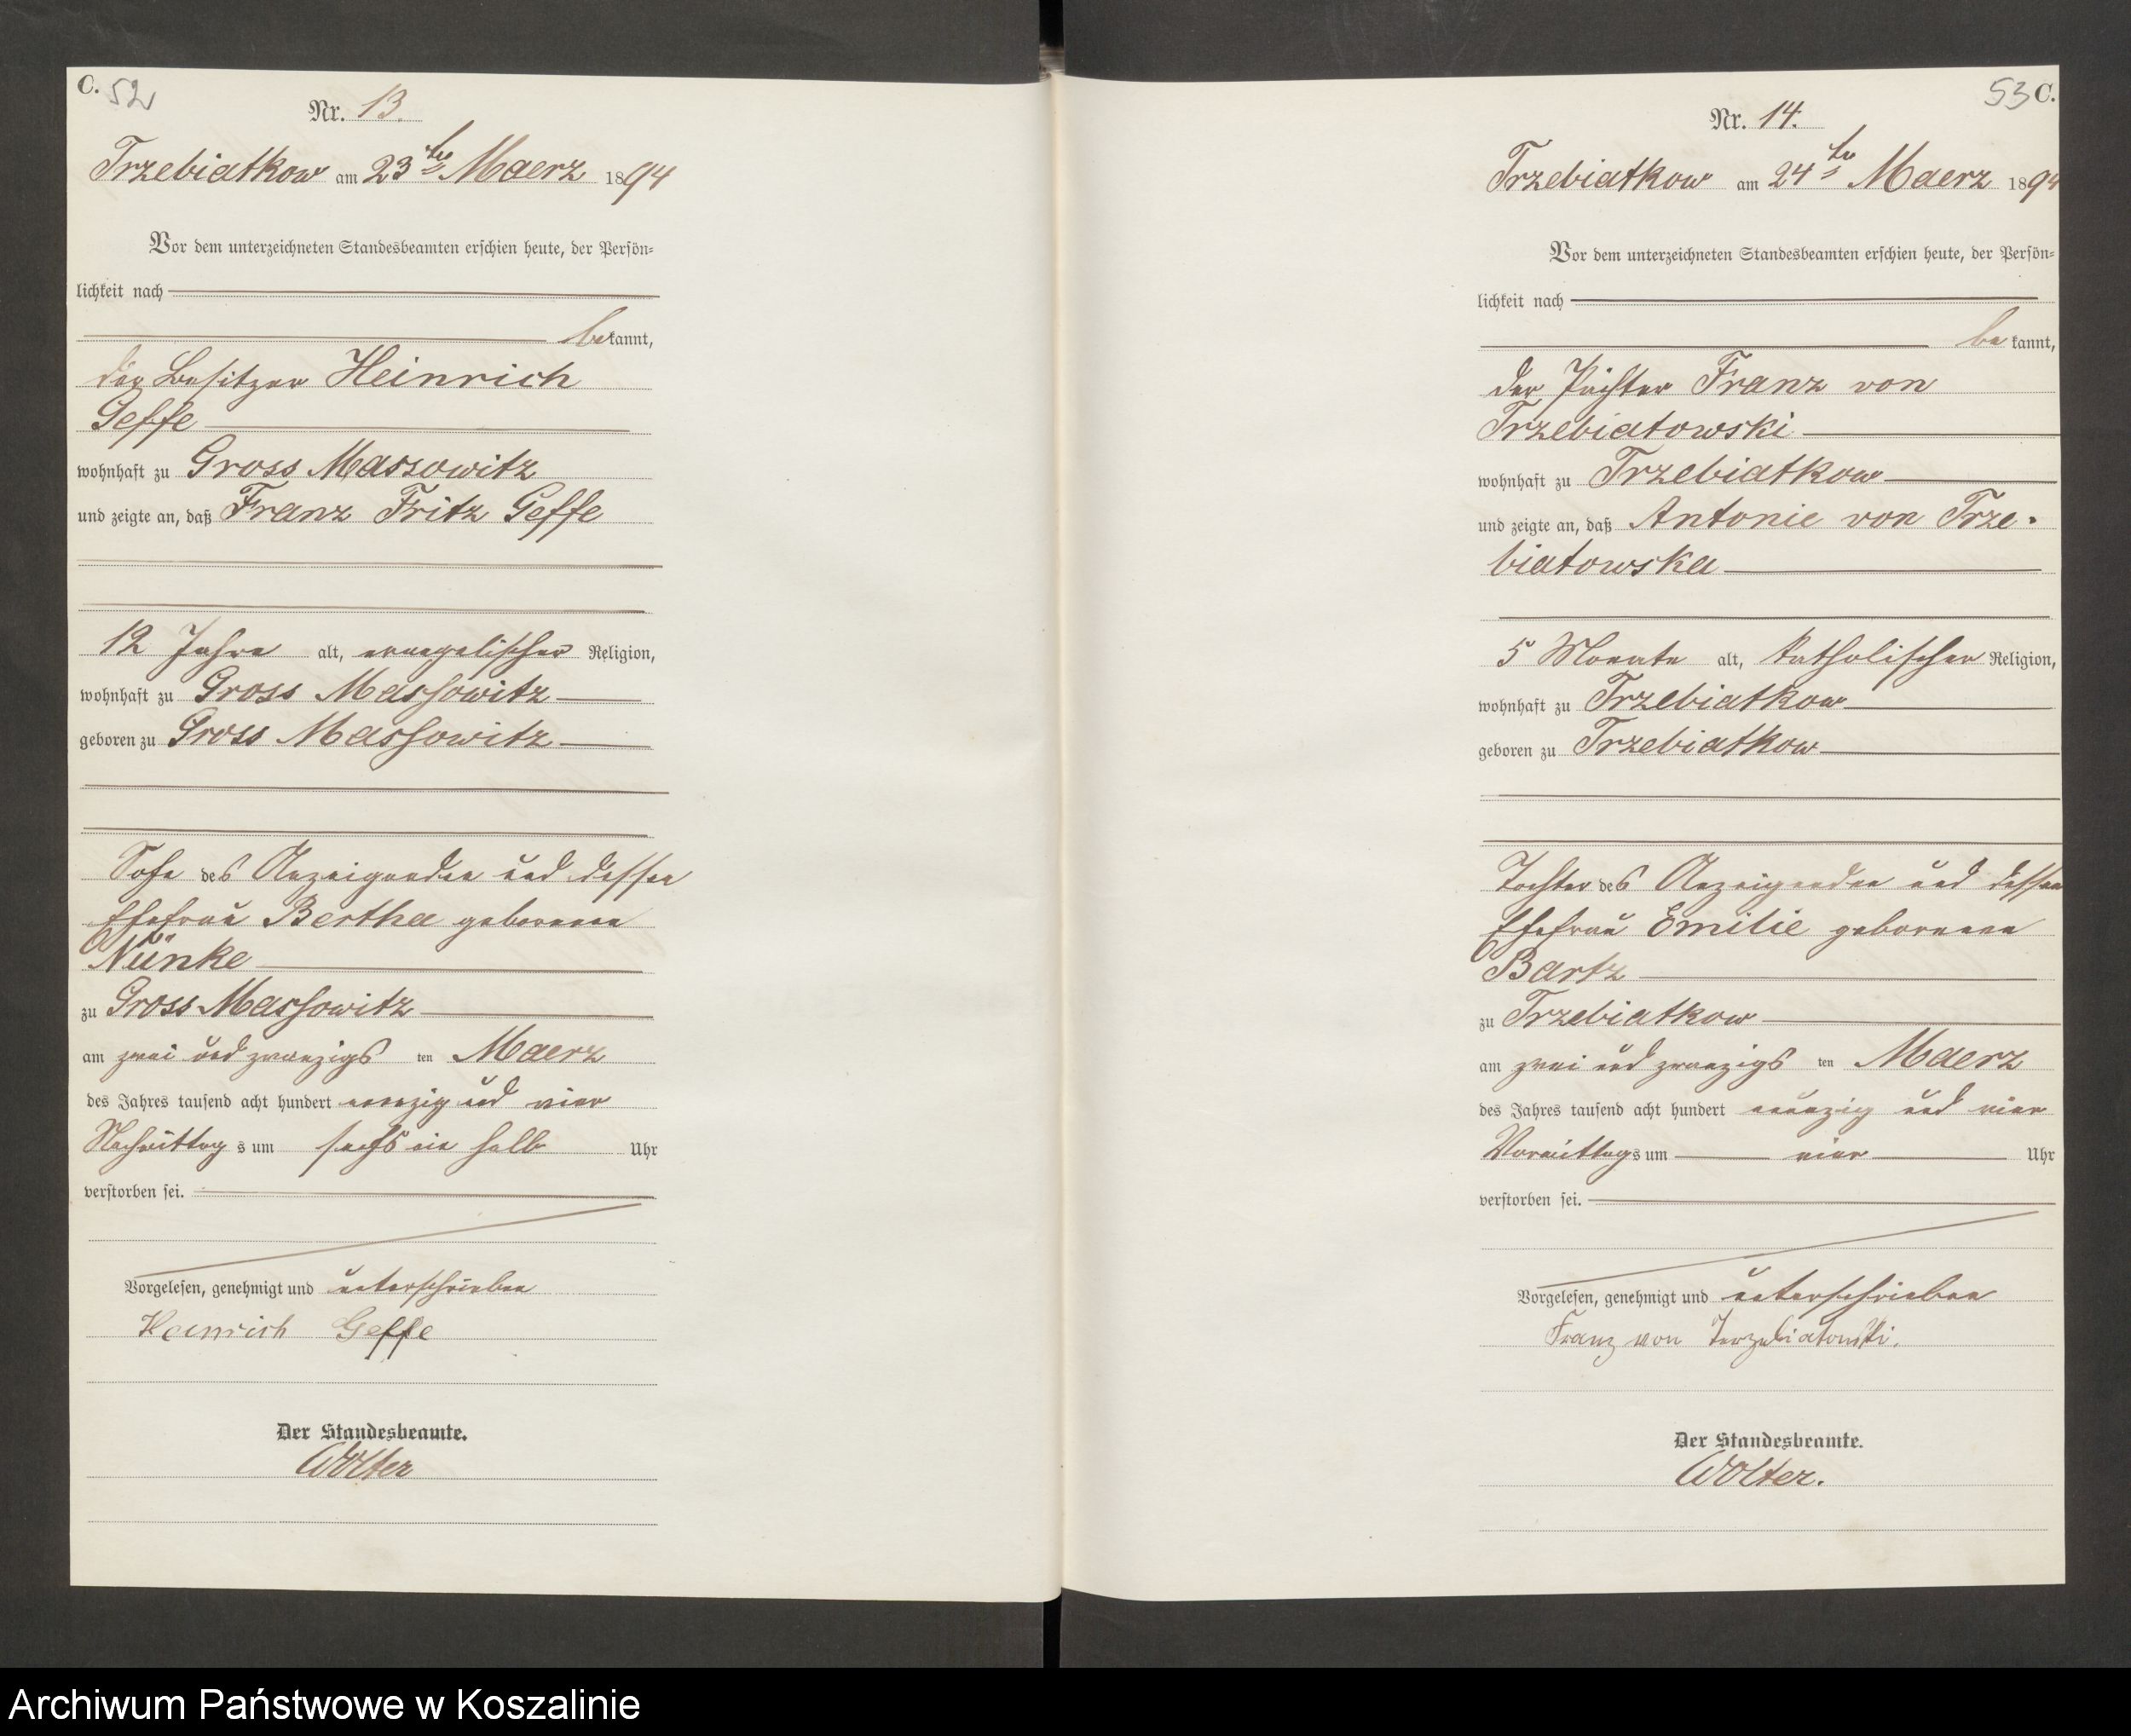 C. 52
Nr. 13.
Trzebiatkow am 23ten Maerz 1894
Vor dem unterzeichneten Standesbeamten erschien heute, der Persön-
lichkeit nach
bekannt,
der Besitzer Heinrich
Geffe
wohnhaft zu Gross Massowitz
und zeigte an, daß Franz Fritz Geffe
12 Jahre alt, evangelischer Religion,
wohnhaft zu Gross Massowitz
geboren zu Gross Massowitz
Sohn des Anzeigenden und dessen
Ehefrau Bertha geborenen
Nünke
zu Gross Massowitz
am zwei und zwanzigsten Maerz
des Jahres tausend acht hundert neunzig und vier
Nachmittags um sechs ein halb Uhr
verstorben sei.
Vorgelesen, genehmigt und unterschrieben
Heinrich Geffe
Der Standesbeamte.
Wolter
53 C.
Nr. 14.
Trzebiatkow am 24ten Maerz 1894
Vor dem unterzeichneten Standesbeamten erschien heute, der Persön-
lichkeit nach
bekannt,
der Pächter Franz von
Trzebiatowski
wohnhaft zu Trzebiatkow
und zeigte an, daß Antonie von Trze-
biatowska
5 Monate alt, katholischer Religion,
wohnhaft zu Trzebiatkow
geboren zu Trzebiatkow
Tochter des Anzeigenden und dessen
Ehefrau Emilie geborenen
Bartz
zu Trzebiatkow
am zwei und zwanzigsten Maerz
des Jahres tausend acht hundert neunzig und vier
Vormittags um vier Uhr
verstorben sei.
Vorgelesen, genehmigt und unterschrieben
Franz von Terzebiatowski.
Der Standesbeamte.
Wolter.
Archiwum Państwowe w Koszalinie